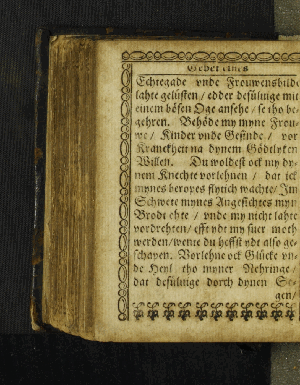 Gebet eines
Echtegade vnde Frouwensbilde
lahte gelüsten / edder desülvige mit
einem bösen Oge ansehe / se tho be-
gehren. Behöde my myne Frou-
we / Kinder vnde Gesinde / vor
Kranckheit na dynem Gödtlyken
Willen. Du woldest ock my dy-
nem Knechte vorlehnen / dat ick
mynes beropes flytich wachte / Im
Schwete mynes Angesichtes myn
Brodt ehte / vnde my nicht lahte
vordrehten / efft ydt my suer moth
werden / wente du heffst ydt also ge-
schapen. Vorlehne ock Glücke vn-
de Heyl tho myner Nehringe /
dat desülvige dorch dynen Se-
gen /